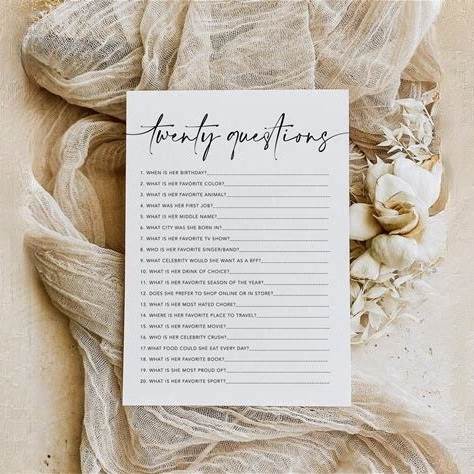 twenty questions
1. WHEN IS HER BIRTHDAY?
2. WHAT IS HER FAVORITE COLOR?
3. WHAT IS HER FAVORITE ANIMAL?
4. WHAT WAS HER FIRST JOB?
5. WHAT IS HER MIDDLE NAME?
6. WHAT CITY WAS SHE BORN IN?
7. WHAT IS HER FAVORITE TV SHOW?
8. WHO IS HER FAVORITE SINGER/BAND?
9. WHAT CELEBRITY WOULD SHE WANT AS A BFF?
10. WHAT IS HER DRINK OF CHOICE?
11. WHAT IS HER FAVORITE SEASON OF THE YEAR?
12. DOES SHE PREFER TO SHOP ONLINE OR IN STORE?
13. WHAT IS HER MOST HATED CHORE?
14. WHERE IS HER FAVORITE PLACE TO TRAVEL?
15. WHAT IS HER FAVORITE MOVIE?
16. WHO IS HER CELEBRITY CRUSH?
17. WHAT FOOD COULD SHE EAT EVERY DAY?
18. WHAT IS HER FAVORITE BOOK?
19. WHAT IS SHE MOST PROUD OF?
20. WHAT IS HER FAVORITE SPORT?